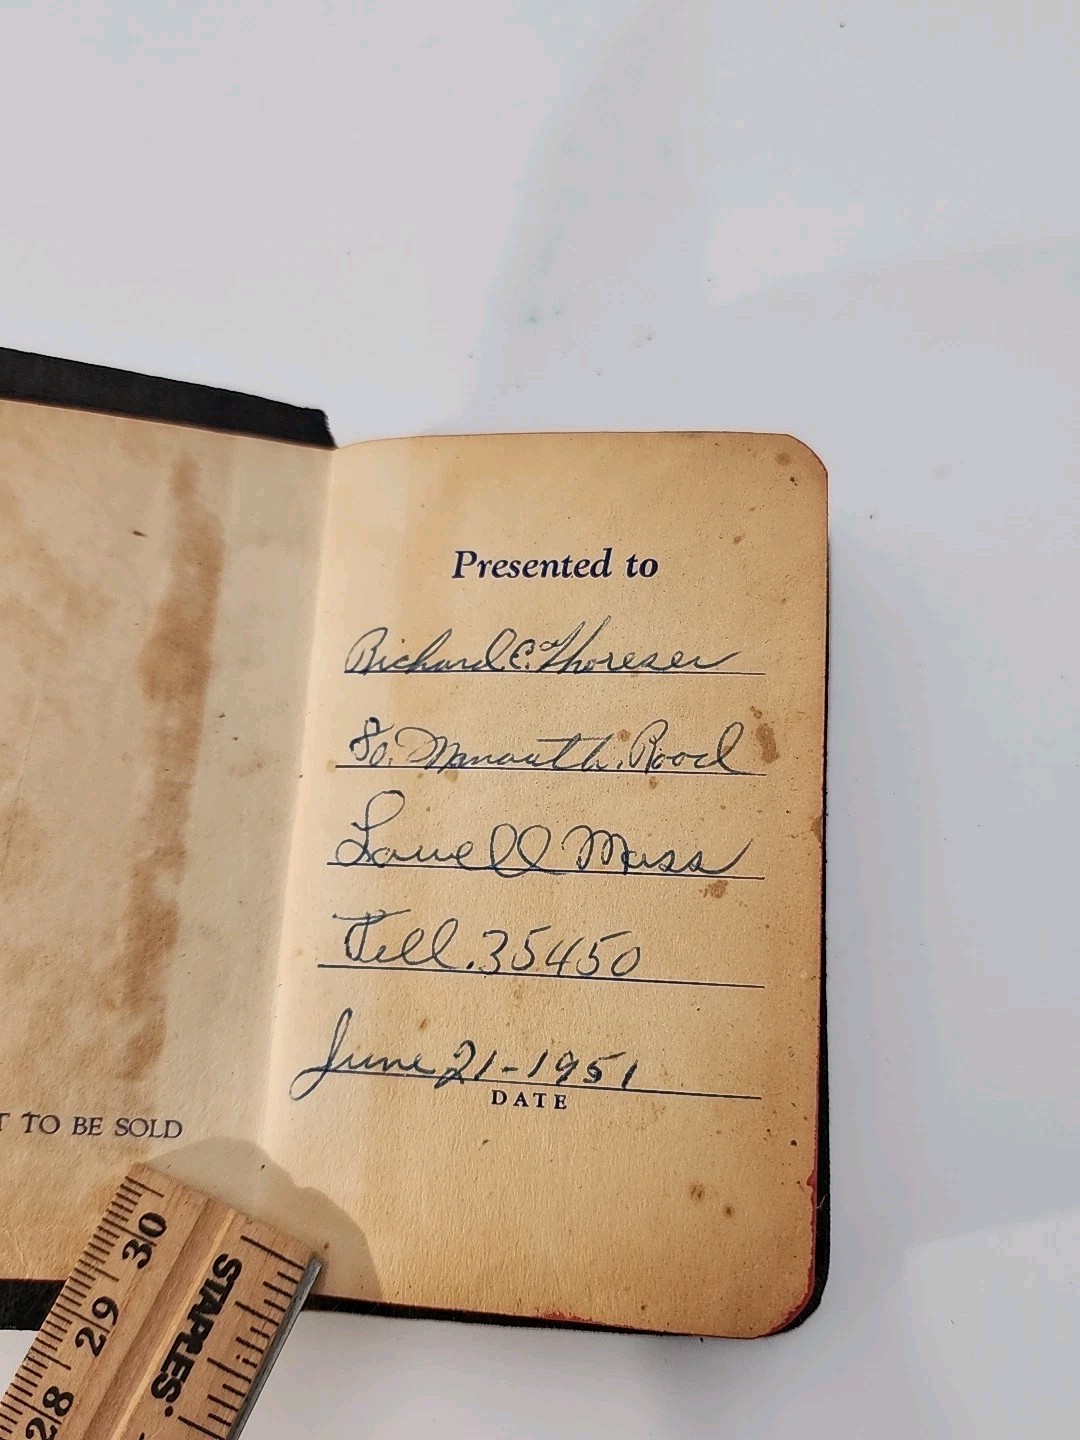 Presented to
Richard E. Thoresen
So. Road
Lowell Mass
Tell. 35450
June 21-1951
DATE
T TO BE SOLD
30
29
28
STAPLES